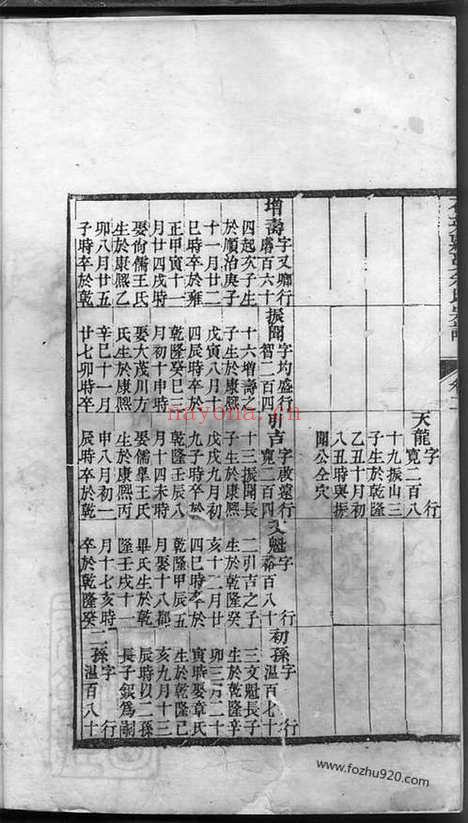 天龍字行
寬二百八
十九振山三
子生於乾隆
乙丑十月初
八丑時與振
聞公仝穴
增壽字又卿行
庸百六十
四起友子生
於順治庚子
十一月廿二
巳時卒於雍
正甲寅十一
月廿四戌時
娶尙儒王氏
生於康熙乙
卯八月廿五
子時卒於乾
振聞字均盛行
智二百四
十六增壽之
子生於康熙
戊寅八月十
四辰時卒於
乾隆癸巳三
月初十申時
娶大茂川方
氏生於康熙
辛巳十一月
廿七卯時卒
引吉字啟遠行
寬二百四
十三振聞長
子生於康熙
戊戌九月初
九子時卒於
乾隆壬辰八
月十四未時
娶儒皐王氏
生於康熙丙
申八月初一
辰時卒於乾
文魁字行
裕百八十
二引吉之子
生於乾隆癸
亥十二月廿
四巳時卒於
乾隆甲辰五
月娶十八都
畢氏生於乾
隆壬戌十一
月十七亥時
卒於乾隆癸
初孫字行
溫百七十
三文魁長子
生於乾隆辛
卯三月二十
寅時娶章氏
生於乾隆己
亥九月十三
辰時以二孫
長子銀爲嗣
二孫字行
溫百八十
nayona.cn
www.fozhu920.com